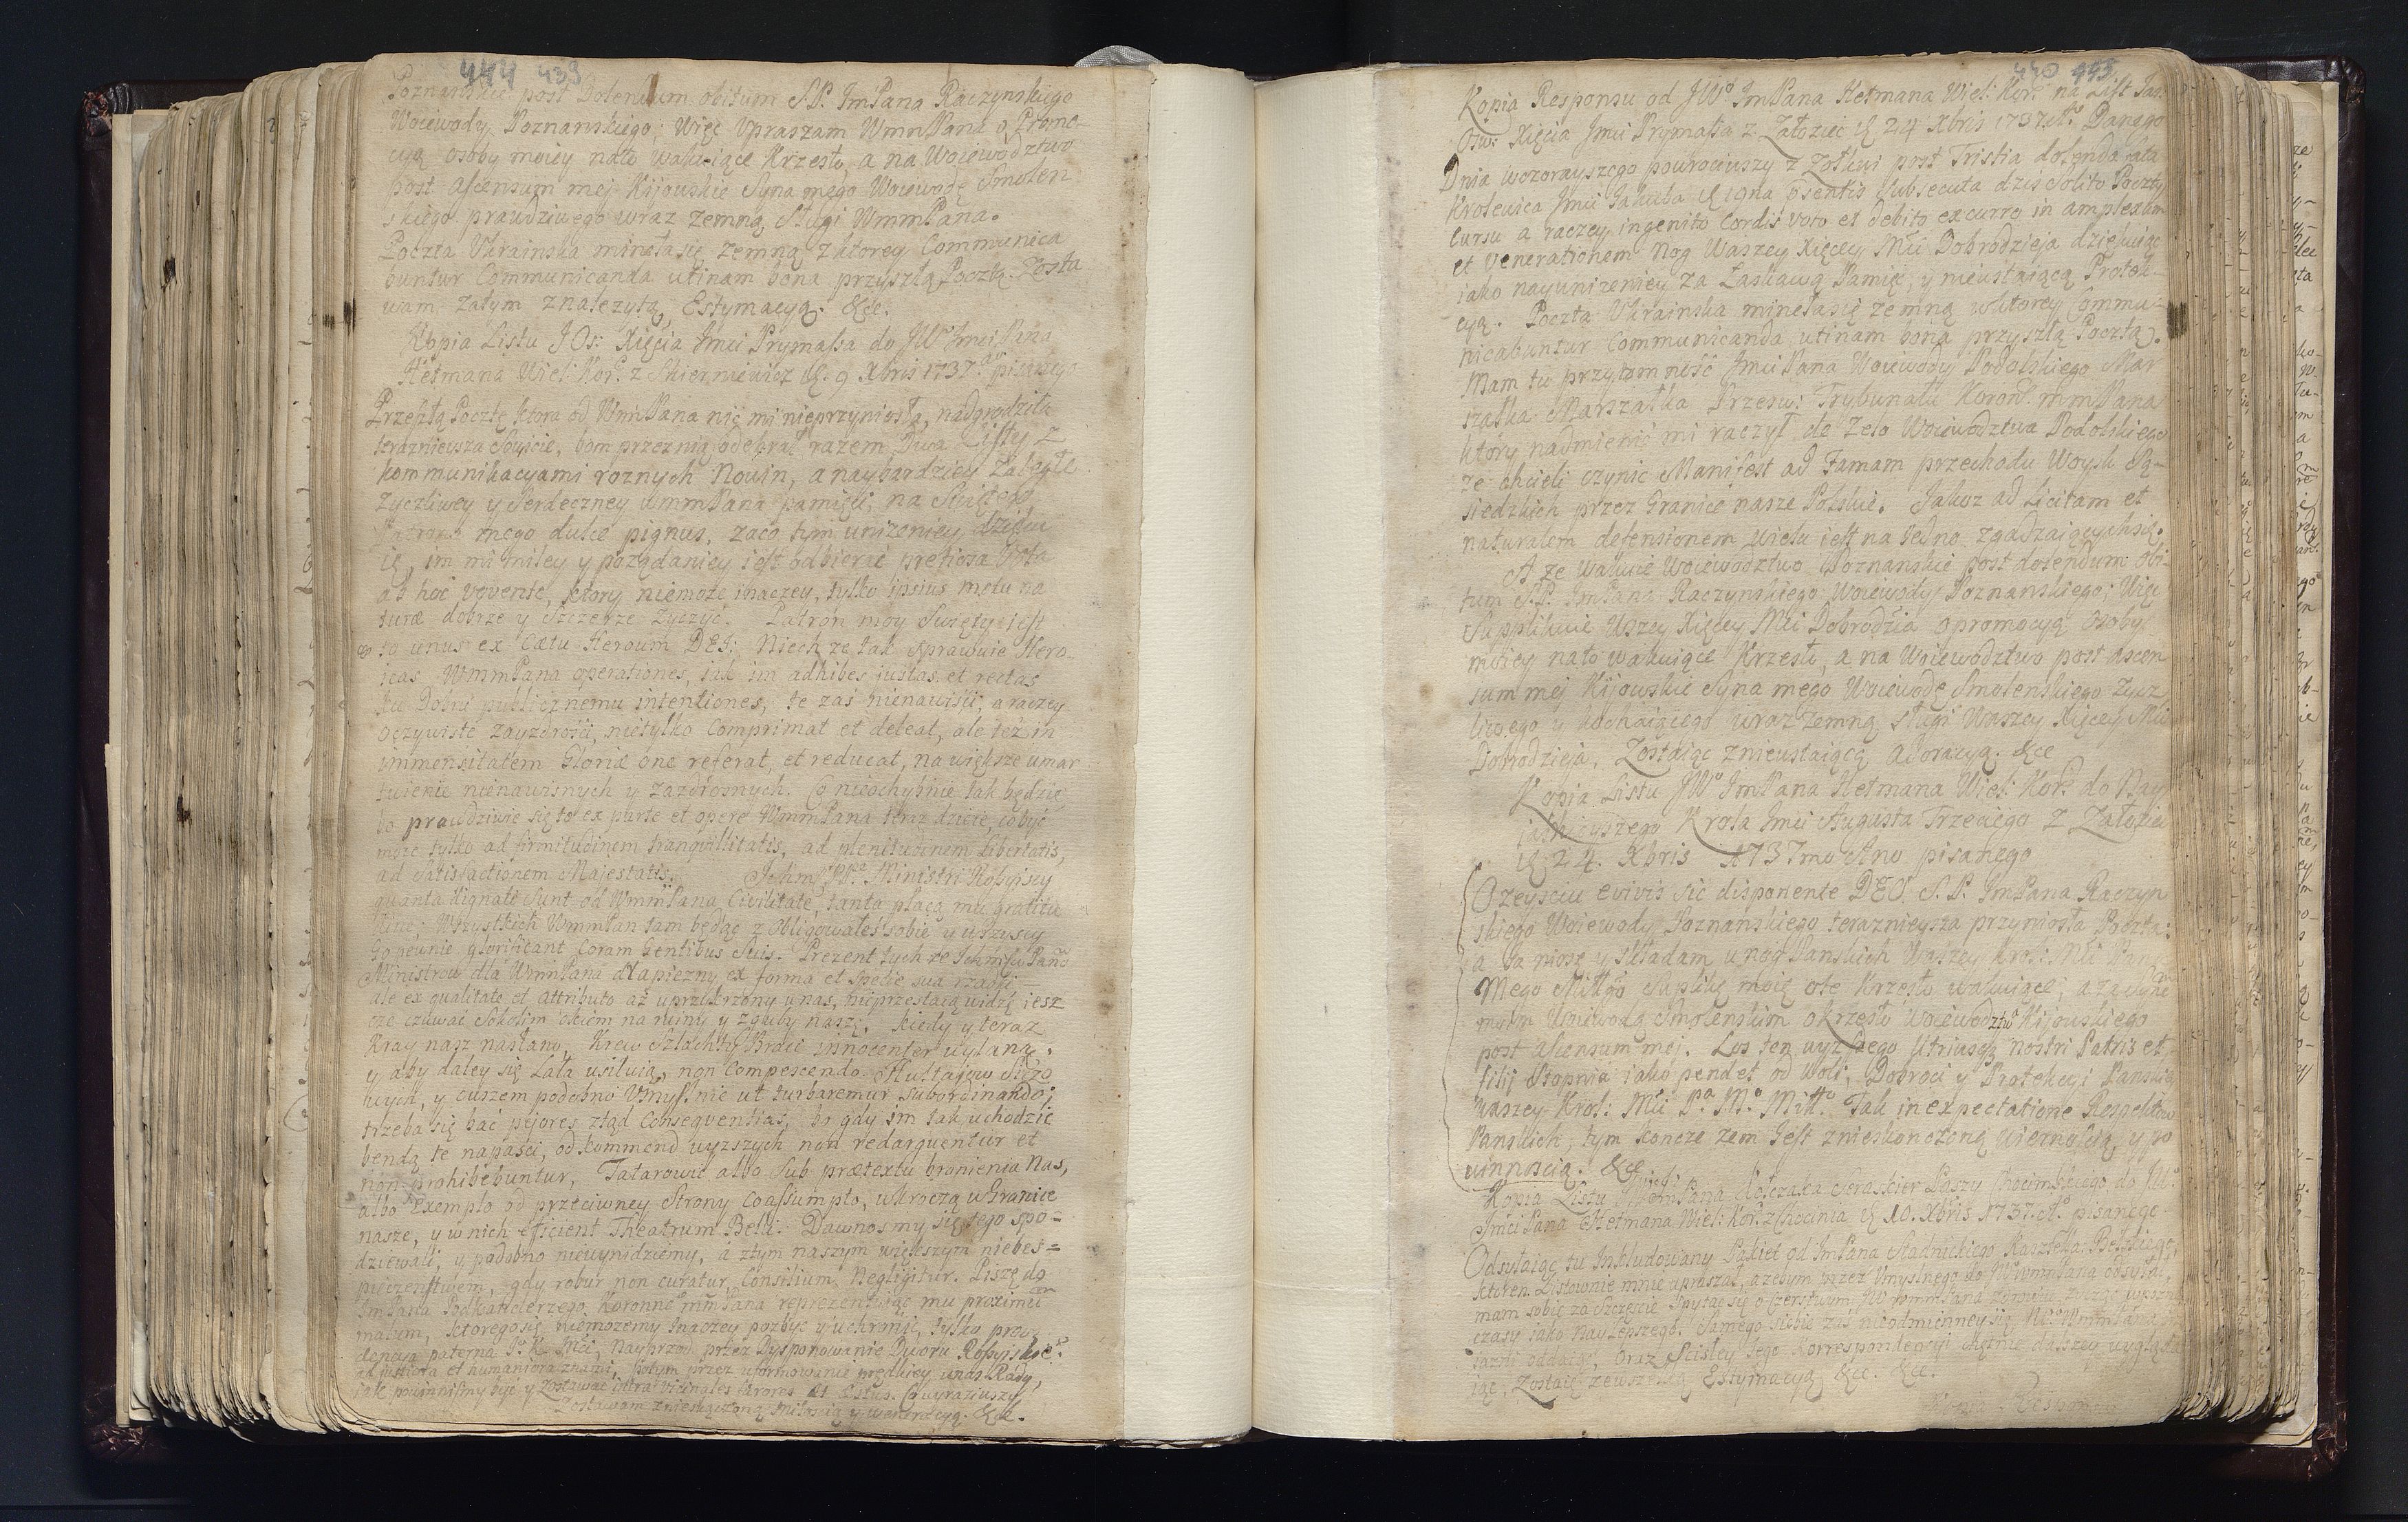 444 439
Poznanskie post Dolendum obitum S.P. ImPana Raczynskiego
Woiewody Poznanskiego; Więc Vpraszam WmnPana o Promo-
cyą osoby moiey nato wakuiące Krzesło, a na Woiewodztwo
post ascensum mej Kijowskie Syna mego Woiewodę Smolen
skiego prawdziwego wraz zemną Sługi WmmPana.
Poczta Vkrainska minęła się zemną z ktorey Communica
buntur Communicanda utinam bona przyszłą Pocztą. Zosta
wam zatym z należytą Estymacyą. &ce.
Kopia Listu JOs: Xięcia Jmci Prymassa do JWo Jmci Pana
Hetmana Wiel: Kor: z Skierniewicz d. 9 Xbris 1737. pisanego
Przeszłą Pocztę ktora od WmPana nic mi nieprzyniosła, nadgrodziła
teraznieysza, bom przez nią odebrał razem Dwa Listy z
kommunikacyami roznych Nowin, a naybardziey
Zyczliwey y Serdeczney WmmPana pamięci, na Swięto
Patrona mego dulce pignus, zaco tym unizeniey dzięku
ię, im mi miley y poządaniey iest odbierać pretiosa Vota
ab hoc vovente, ktory niemoże inaczey, tylko ipsius motu na
turæ dobrze y Szczerze Zyczyć. Patron moy Swięty iest
to unus ex Cætu Heroum DEI; Niech ze tak sprawuie Hero
icas WmmPana operationes, iak im adhibes iustas et rectas
ku Dobru publicznemu intentiones, te zaś nienawiści, a raczey
oczywiste Zayzdrości, nietylko Comprimat et deleat, ale też in
immensitatem Gloriæ one referat, et reducat, na większe umar
twienie nienawisnych y zazdrosnych. Co nieochybnie tak będzie
bo prawdziwie się to ex parte et opere WmmPana teraz dzieie, co być
moze tylko ad firmitudinem tranquillitatis, ad plenitudinem Libertatis,
ad Satisfactionem Majestatis. Ministri Rossyiscy
quanta dignati Sunt od WmmPana Civilitate, tanta płacą mu gratitu
dine; Wszystkich WmmPan tam będąc z obligowałeś sobie y wszyscy
Go pewnie glorificant Coram Gentibus Suis. Prezent tych ze Ichmsciow Panow
Ministrow dla WmmPana drapiezny ex forma et specie sua rzadki
ale ex qualitate et Attributo aż uprzykrzony unas, nieprzestaią widzę iesz
cze czuwać Sokolim okiem na ruinę y zgubę naszę, kiedy y teraz
Kray nasz nastano, Krew Szlachty Braci innocenter wylaną,
y aby daley się Lała usiłuią, non Compescendo
y owszem podobno Vmyslnie ut turbaremur Subordinando;
trzeba się bać pejores ztąd Consequentias, bo gdy im tak uchodzic
będą te napaści, od kommend wyzszych non redarguentur et
non prohibebuntur, Tatarowie albo Sub prætextu bronienia Nas,
albo Exemplo od przeciwney Strony Coassumpto, wkroczą w Granice
nasze, y w nich efficient Theatrum Belli. Dawnosmy się tego spo=
dziewali, y podobno nieuynidziemy, a ztym naszym większym niebes=
pieczenstwem, gdy robur non curatur, Consilium Negligitur. Piszę do
ImPana Podkanclerzego Koronnego mmPana reprezentuiąc mu proximum
malum, ktorego się niemożemy inaczey pozbyć y uchronić, tylko provi
dencyą paterna J.K. Mci, Nayprzod przez Dysponowanie Dworu Rossyiskiego
ad justiora et humaniora znami, potym przez uformowanie prędkiey unas Rady,
iak powinnismy być y zostawać intra vicinales furores et æstus. Co wyraziwszy
Zostawam z nieskączoną miłością y weneracyą. &ce.
440 445
Kopia Responsu od JWo ImPana Hetmana Wiel: Kor: na List Jas:
Osw: Xięcia Jmci Prymassa z Załoziec d. 24 Xbris 1737. Danego
Dnia wczorayszego powrociwszy z Zołkwi post Tristia dolenda fata
Krolewica Jmci Jakuba d. 19na præsentis Subsecuta dzis Solito Poczty
cursu a raczey ingenito Cordis voto et debito excurro in amplexum
et Venerationem Nog Waszey Xięcey Mci Dobrodzieja dziękuiąc
iako nayunizeniey za Łaskawą Pamięć, y nieustaiącą Protek-
cyą. Poczta Vkrainska minęła się zemną w ktorey Commu-
nicabuntur Communicanda utinam bona przyszłą Pocztą.
Mam tu przytomność Jmci Pana Woiewody Podolskiego Mar
szałka Marszałka Przesw: Trybunału Koron: mmPana
który nadmienić mi raczył, de Zelo Woiewodztwa Podolskiego
ze chcieli czynic Manifest ad Famam przechodu Woysk Są-
siedzkich przez Granice nasze Polskie. Jakoz ad Licitam et
naturalem defensionem wielu iest na iedno zgadzaiących się.
A ze wakuie Woiewodztwo Poznanskie post dolendum obi-
tum S.P. ImPana Raczynskiego Woiewody Poznanskiego; Więc
Supplikuie Wszey Xięcey Mci Dobrodzia o promocyą Osoby
moiey nato wakuiące Krzesło, a na Woiewodztwo post ascen
sum mej Kijowskie Syna mego Woiewodę Smolenskiego zycz
liwego y kochaiącego wraz zemną sługi Waszey Xięcey Mci
Dobrodzieja, Zostaiąc z nieustaiącą adoracyą. &ce
Kopia Listu JWo ImPana Hetmana Wiel: Kor: do Nay
iasnieyszego Krola Jmci Augusta Trzeciego z Załoziec
d. 24. Xbris 1737mo Ano pisanego
O zeysciu evivis sic disponente DEO S.P. ImPana Raczyn
skiego Woiewody Poznanskiego teraznieysza przyniosła Poczta:
a Ja niosę y składam u nog Panskich Waszey Krol: Mci Pana
Mego Miłłgo Suplikę moię ote Krzesło wakuiące, a za Syne
moim Woiewodą Smolenskim okrzesło Woiewodztwa Kijowskiego
post ascensum mej. Los ten wyzszego Utriusqꝫ nostri Patris et
filij Stopnia iako pendet od woli, Dobroci y Protekcyi Panskiey
Waszey Krol: Mci Pa Mo Miłło Tak in expectatione Respektow
Panskich, tym koncze zem Jest z nieskonczoną wiernością, y po
winnoscią. &ce
Kopia Listu ImPana Kołczaka Seraskier Baszy Chocimskiego do JWo
JmciPana Hetmana Wiel: Kor: z Chocimia d. 10. Xbris 1737. Ao pisanego
Odsyłaiąc tu Inkludowany Pakiet od ImPana Stadnickiego Kasztela: Bełskiego,
ktoren Listownie mnie upraszał, azebym przez Vmyslnego do JW WmmPana odsyłał,
mam sobie za szczęscie spytać się o czerstwym JW WmmPana zdrowiu, zycząc
czasy iako naylepszego. Samego Siebie zaś nieodmienney JWo WmmPana
iazni oddaiąc, oraz Scisley Jego Korrespondencyi chętnie daszey wygląda
iąc, Zostaię zewszelką Estymacyą &ce. &ce.
Kopia Responsu